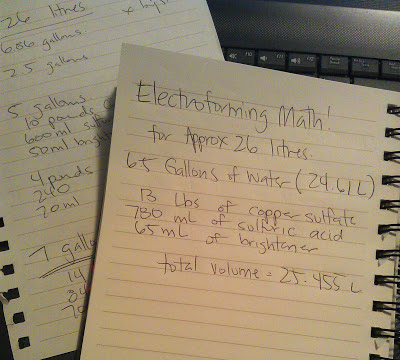 26 litres
6.86 gallons
25 gallons
5 gallons
10 pounds
600ml
50ml
4 pounds
240
20ml
7
14
Electroforming Math!
for Approx 26 litres.
6.5 Gallons of Water (24.61L)
13 Lbs of copper sulfate
780 mL of sulfuric acid
65mL of brightener
total volume = 25.455 L